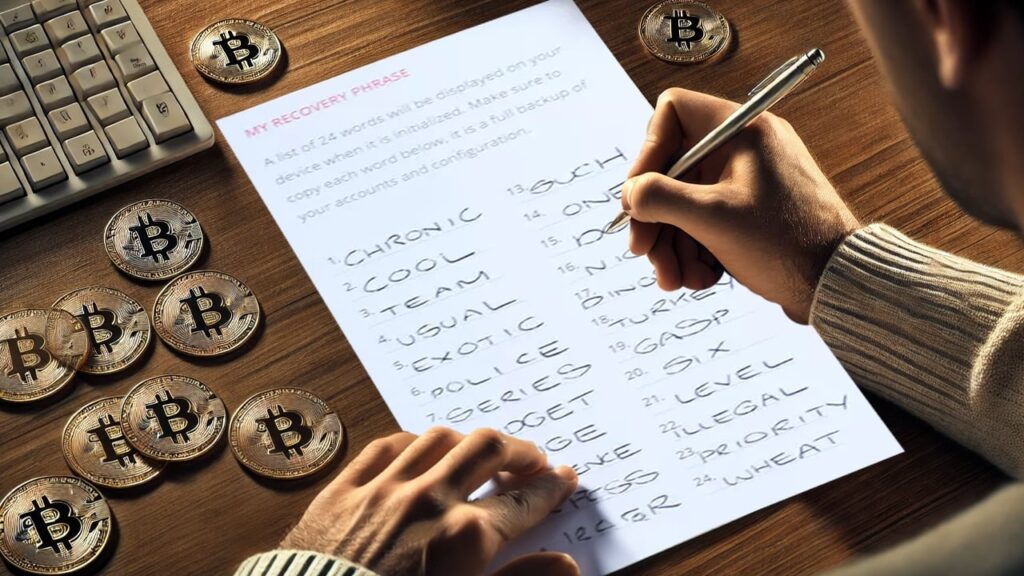 MY RECOVERY PHRASE
A list of 24 words will be displayed on your
device when it is initialized. Make sure to
copy each word below. it is a full backup of
your accounts and configuration.
1. CHRONIC
2. COOL
3. TEAM
4. USUAL
5. EXOTIC
6. POLICE
7. SERIES
13. SUCH
14. ONE
15.
16.
17.
18. TURKEY
19. GASP
20. SIX
21. LEVEL
22. ILLEGAL
23. PRIORITY
24. WHEAT